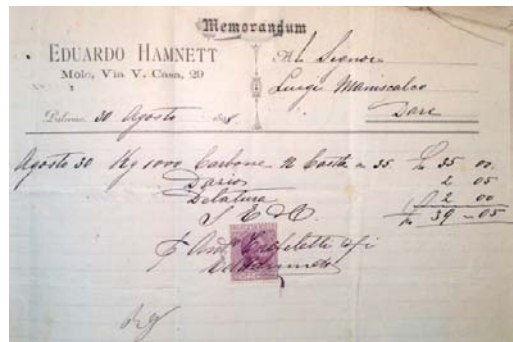 Memorandum
EDUARDO HAMNETT
Molo, Via V. Casa, 29
Al Signor
Luigi Maniscalco
Dare
Palermo, 30 Agosto
Agosto 30 Kg 1000 Carbone a 35 £ 35 00
Dazio 2 05
2 00
S. E. & O. £ 39 - 05